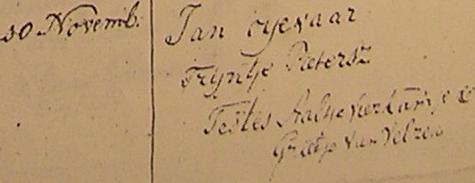 30 Novemb: Jan oyevaar
Tryntje Pietersz
Testes Aaltje Vierkamje &
Grietje van Velzen